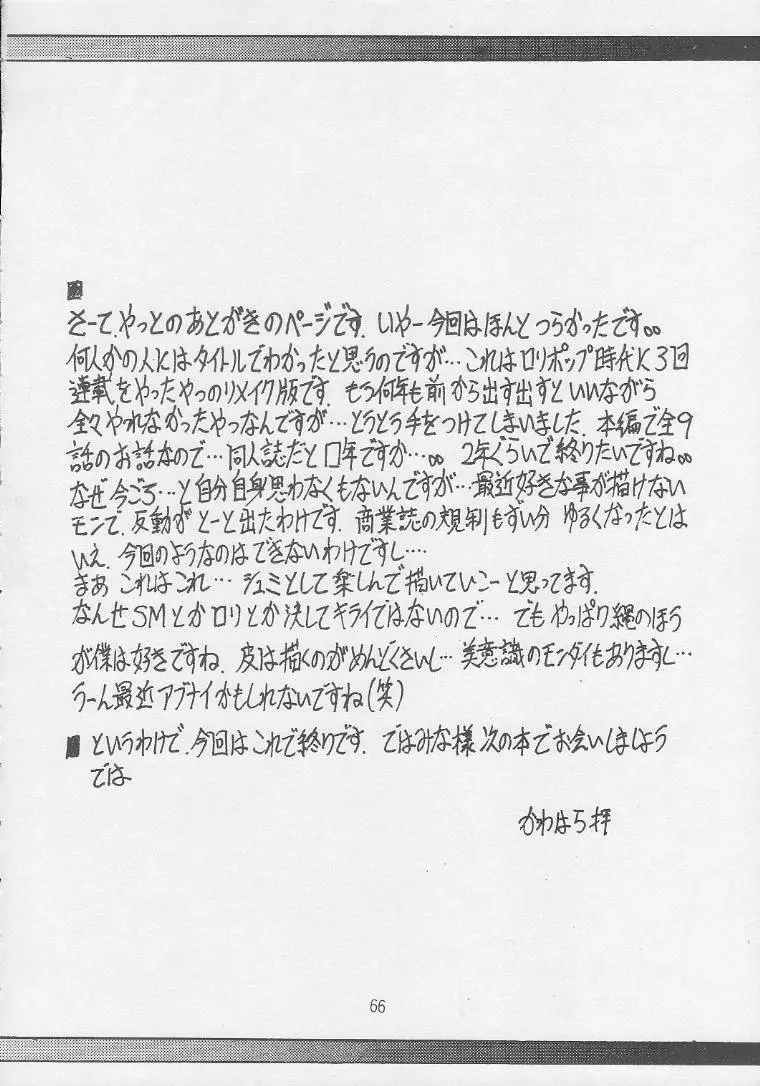 さーて、やっとのあとがきのページです。いやー今回はほんとつらかったです。。
何人かの人にはタイトルでわかったと思うのですが…これはロリポップ時代に3回
連載をやったやつのリメイク版です。もう何年も前から出す出すといいながら
全々やれなかったやつなんですが…とうとう手をつけてしまいました。本編で全9
話のお話なので…同人誌だと 年ですか…。。2年ぐらいで終りたいですね。。
なぜ今ごろ…と自分自身思わなくもないんですが…最近好きな事が描けない
モンで、反動がどーと出たわけです。商業誌の規制もずい分ゆるくなったとは
いえ、今回のようなのはできないわけですし…
まあこれはこれ…シュミとして楽しんで描いていこーと思ってます。
なんせSMとかロリとか決してキライではないので…でもやっぱり縄のほう
が僕は好きですね、皮は描くのがめんどくさいし…美意識のモンダイもありますし…
うーん最近アブナイかもしれないですね(笑)
というわけで、今回はこれで終りです。ではみな様次の本でお会いしましよう
では
かわはら拝
66